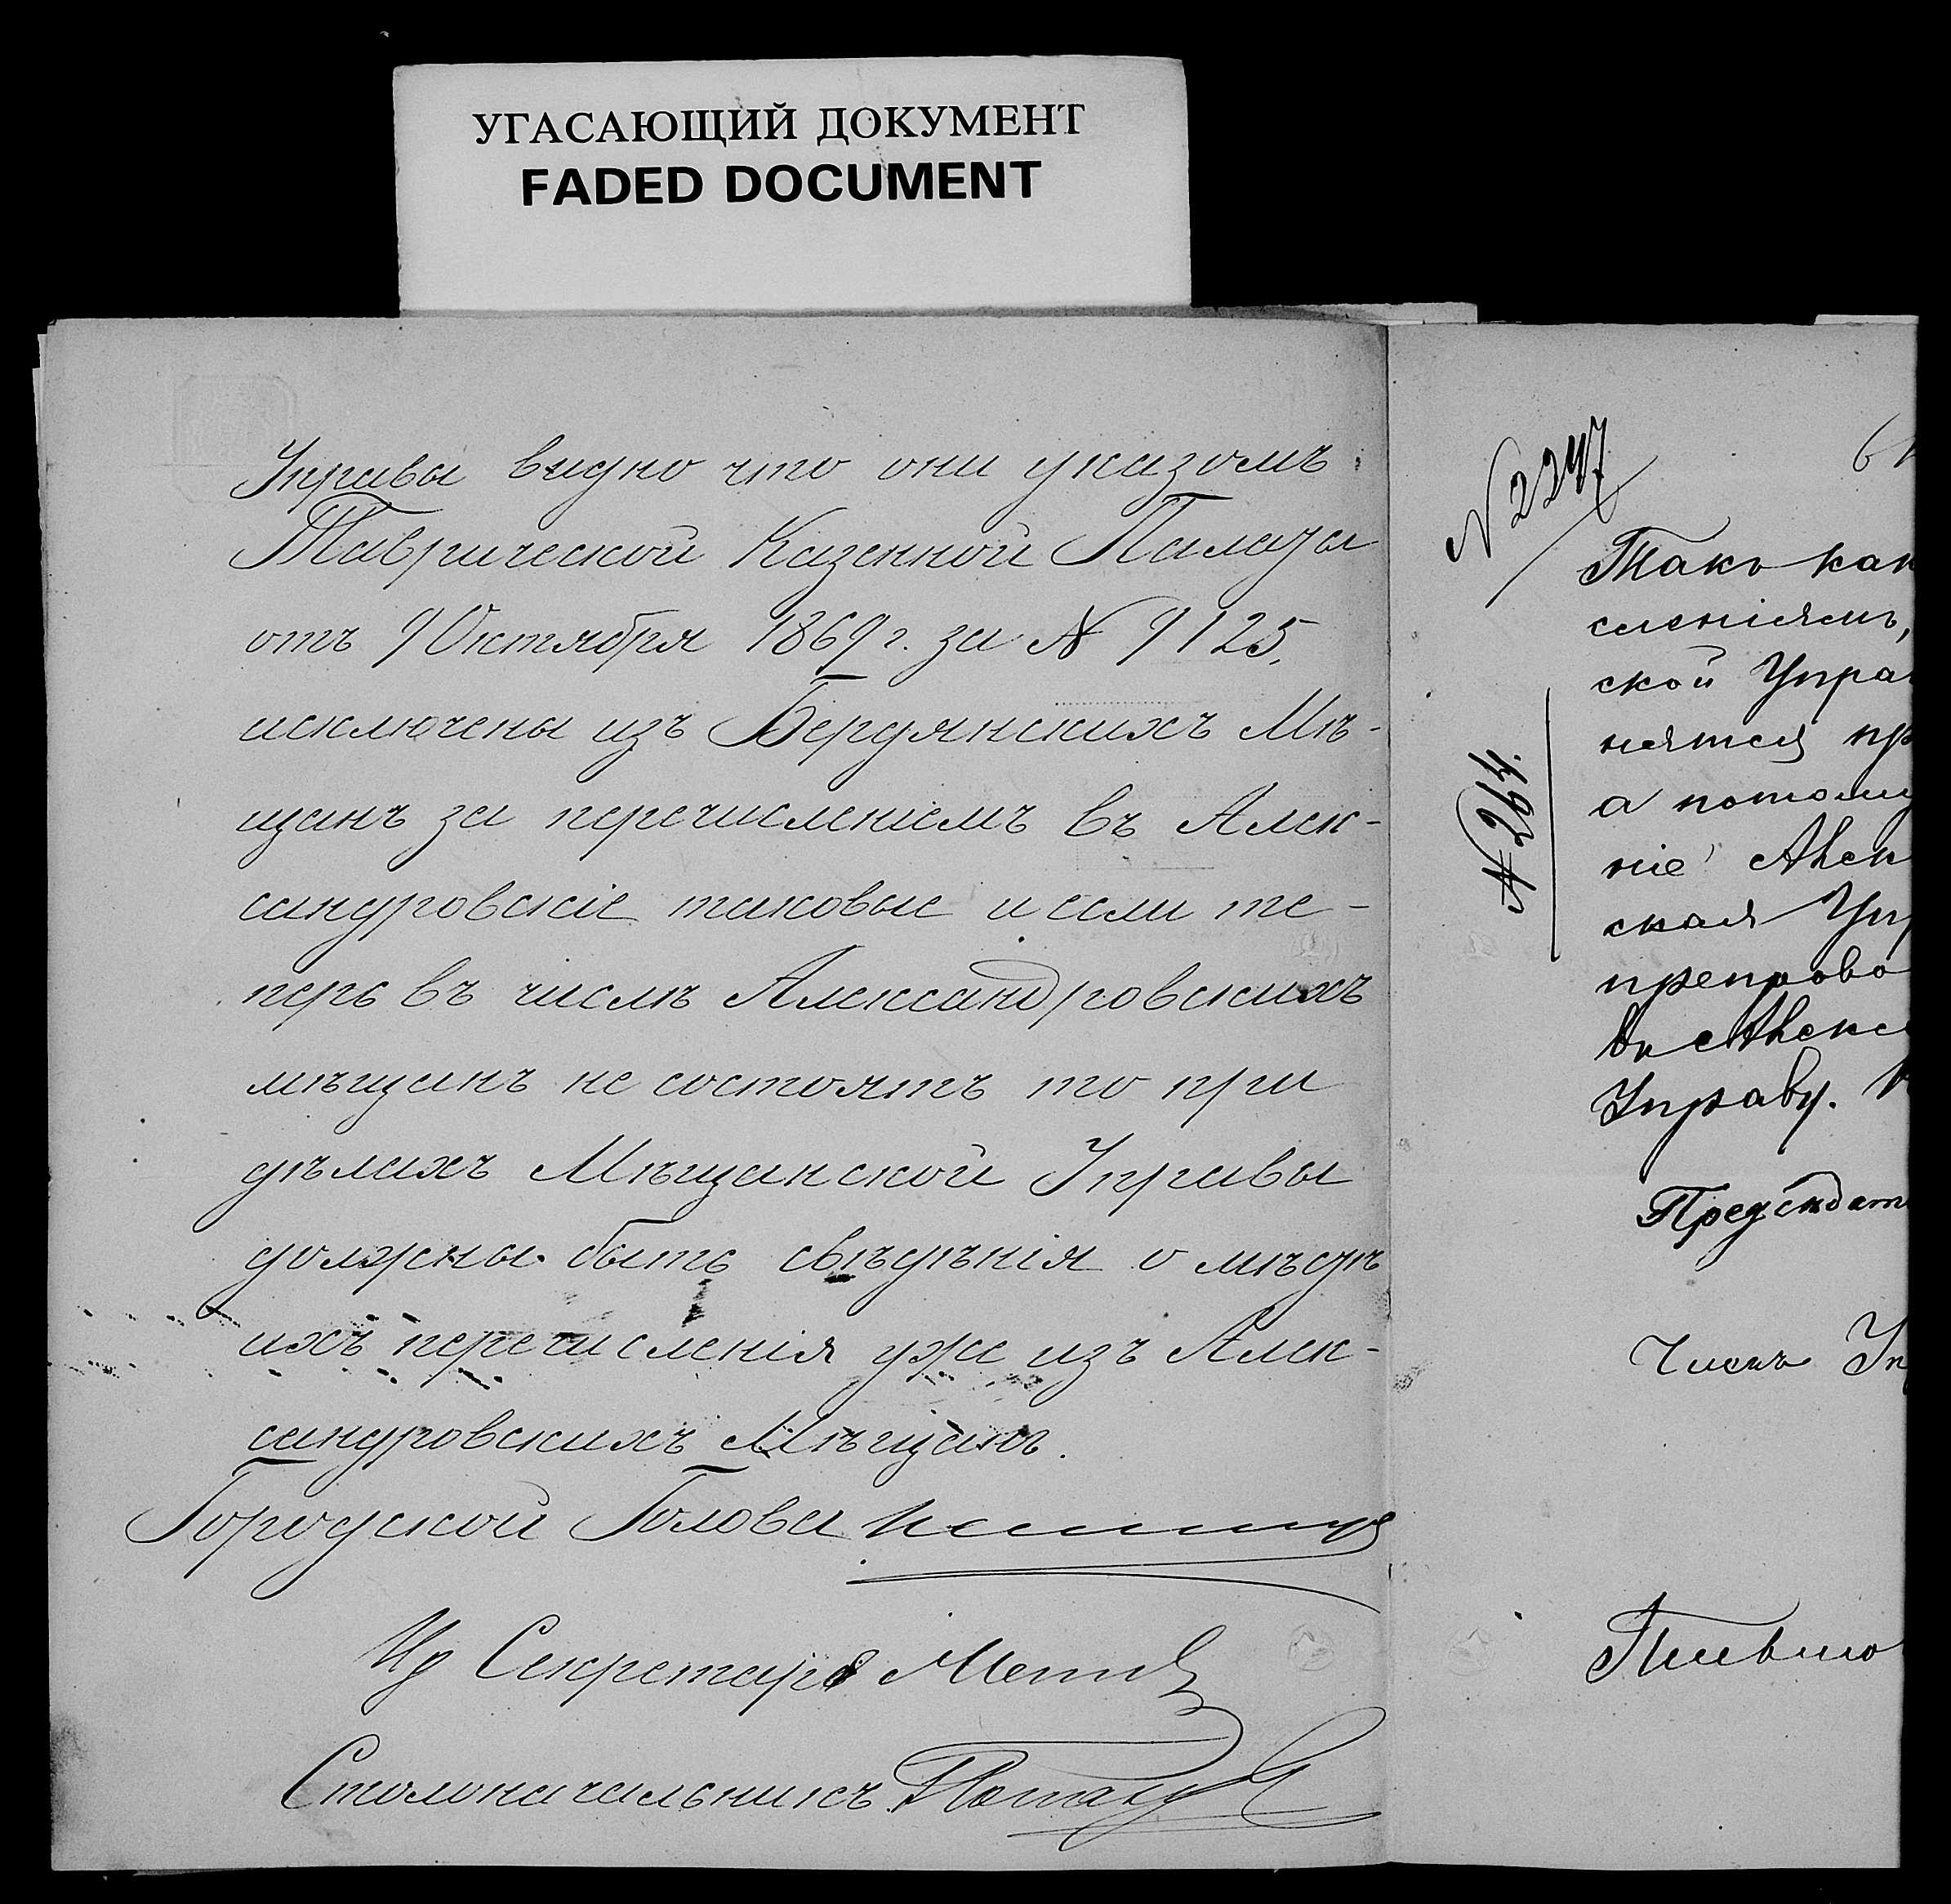 УГАСАЮЩИЙ ДОКУМЕНТ
FADED DOCUMENT
Управы видно что они указомъ
Таврической Казенной Палаты
отъ 9 Октября 1869 г. за № 9125,
исключены изъ Бердянскихъ Мѣ-
щанъ за перечисленіемъ въ Алек-
сандровскіе таковые и если те-
перь въ числѣ Александровскихъ
мѣщанъ не состоятъ то при
дѣлахъ Мѣщанской Управы
должны быть свѣдѣнія о
ихъ перечисленія уже изъ Алек-
сандровскихъ Мѣщанъ.
Городской Голова
Ир Секретаря
Столоначальникъ
№ 2247
№ 924.
Такъ как
сленіямъ,
ской Упра
нятся пр
а потому
ніе Алек
ская Упр
препрово
въ Алекс
Управу.
Предсѣдат
Членъ Уп